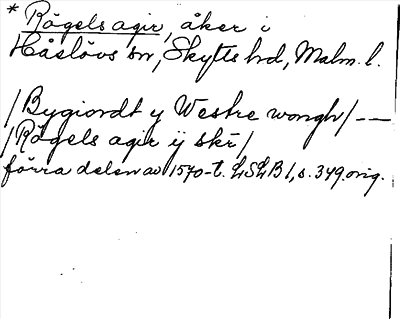 * Rögels agir, åker i
Håslövs sn, Skytts hd, Malm. l.
/Bygiordt y Westre wongh/ — —
/Rögels agir ij skr̄/
förra delen av 1570-t. LSLB 1, s. 349. orig.